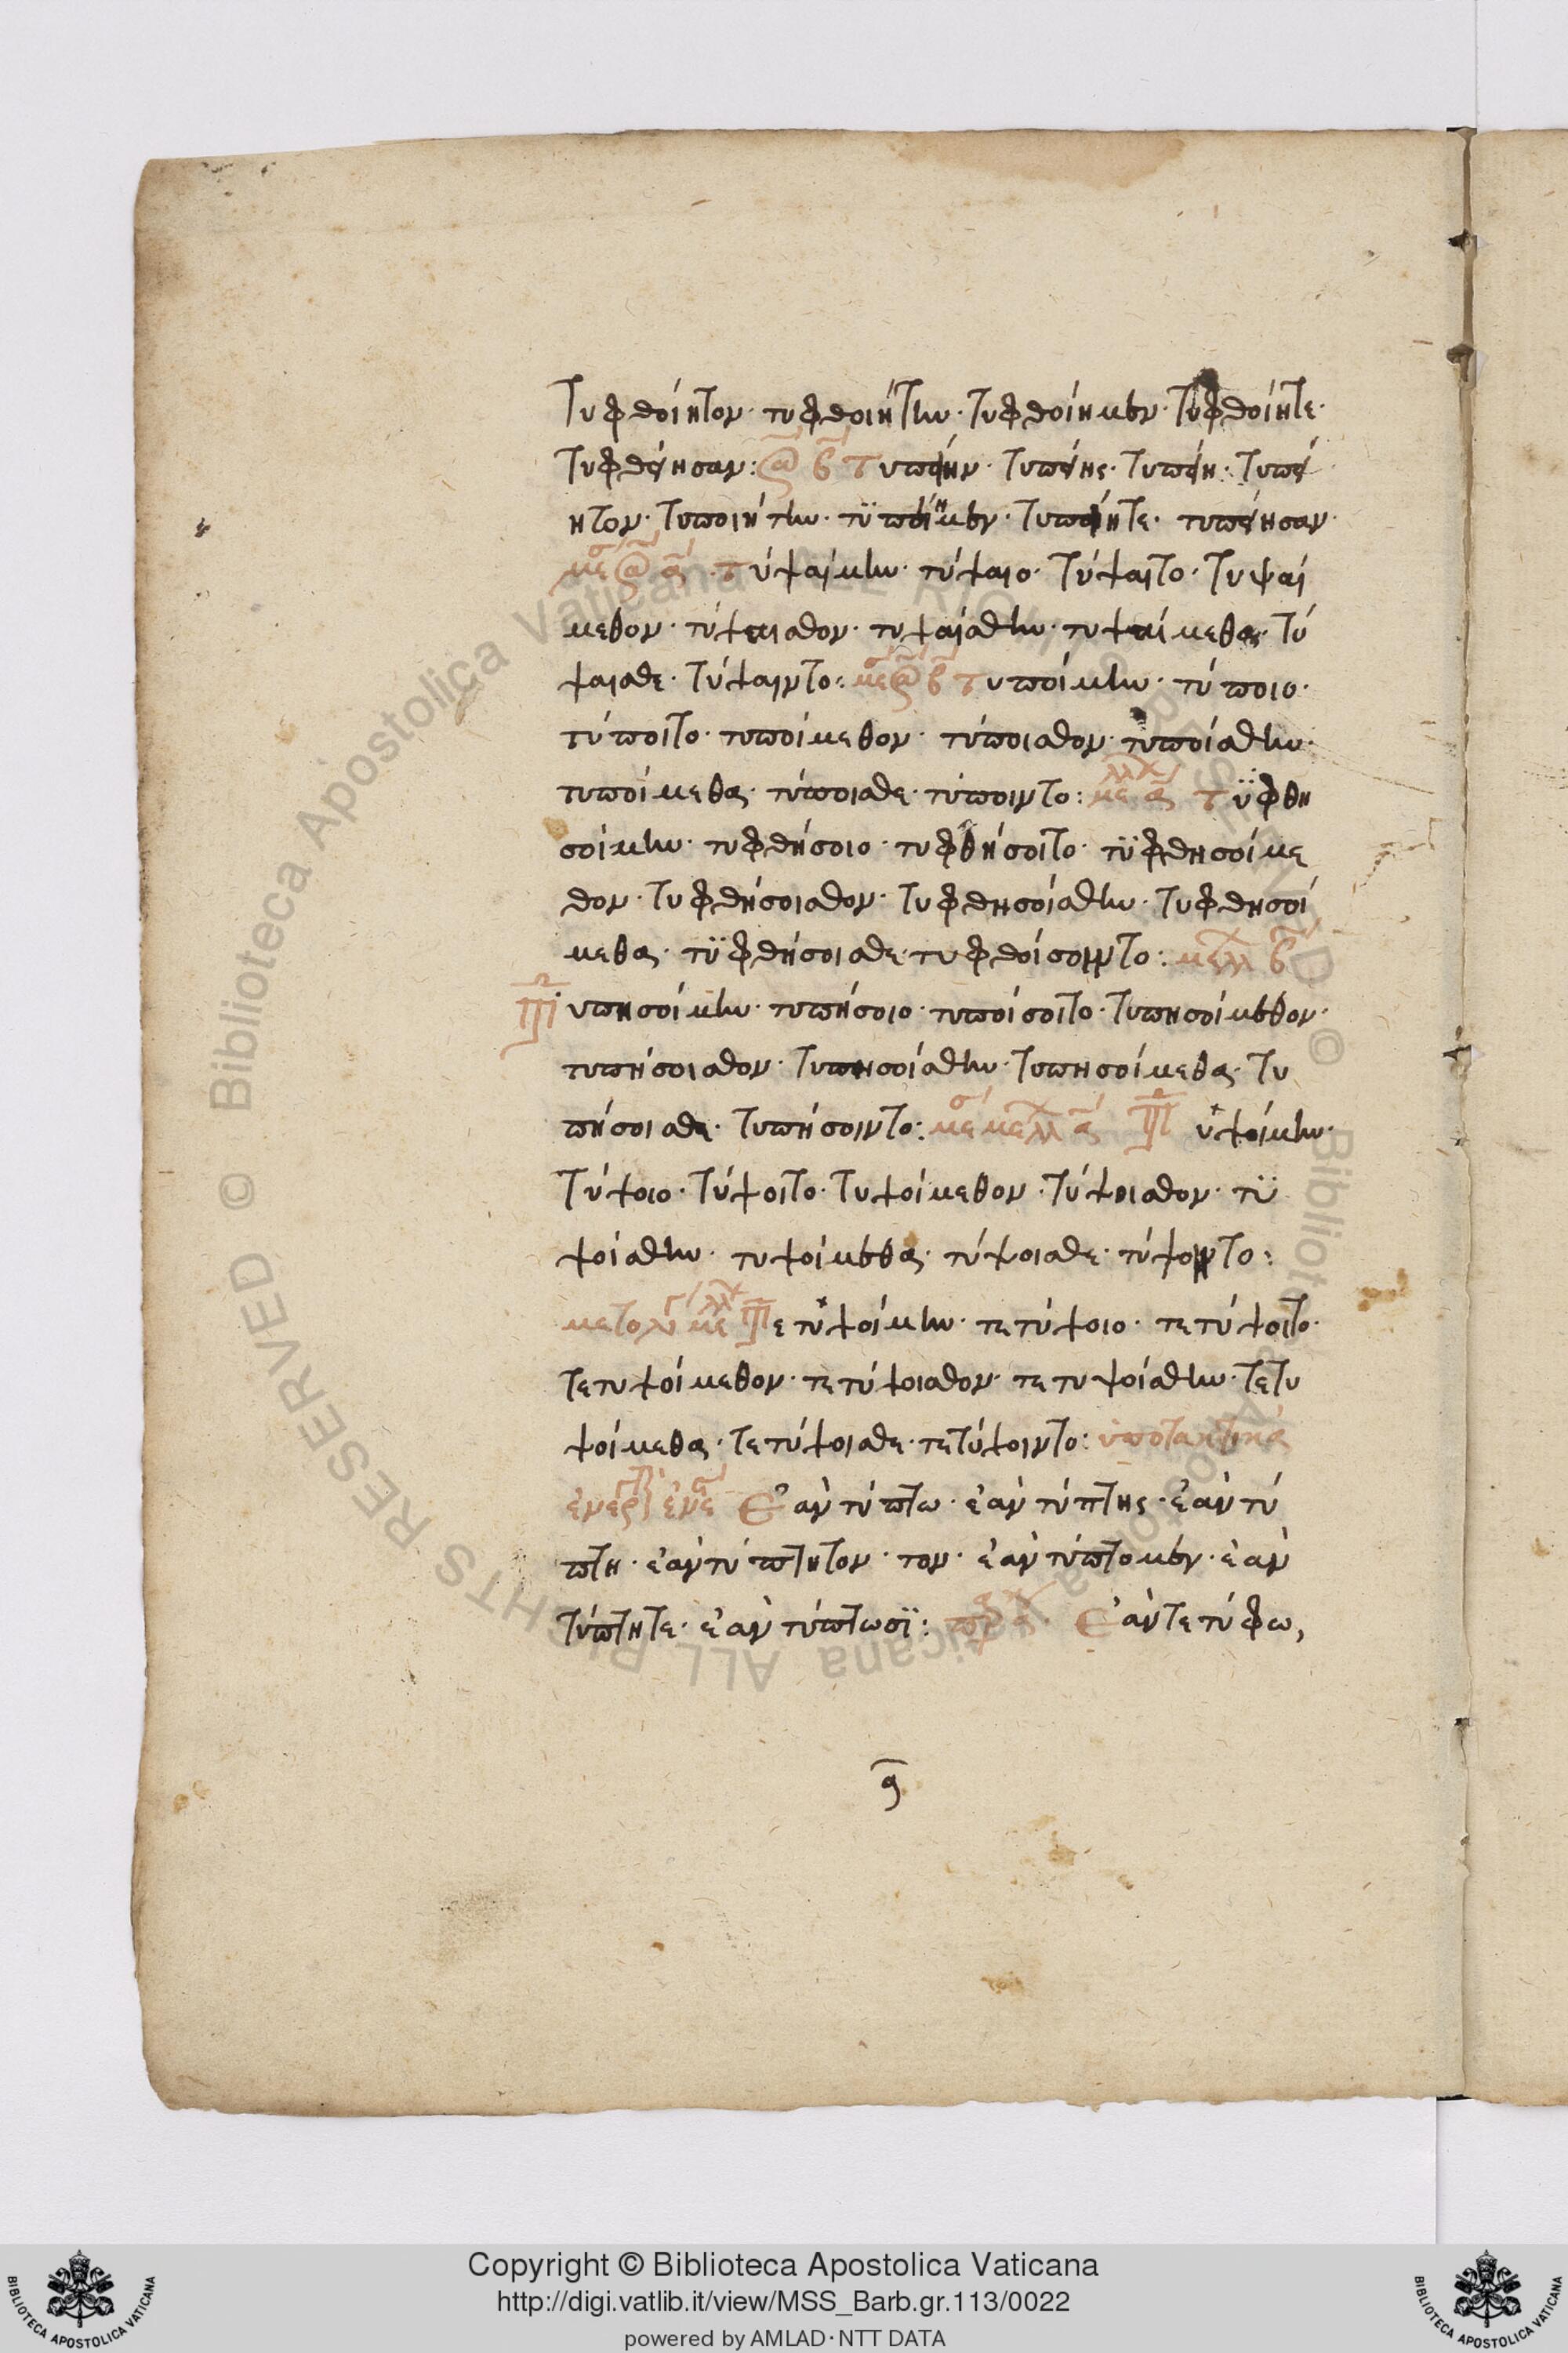 Τυφθοίητον· τυφθοιήτην· τυφθοίημεν· τυφθοίητε·
τυφθείησαν: ἀό β Τυποίην· τυπείης· τυποίη· τυπεί
ητον· τυποιήτην· τϋποίημεν· τυποίητε· τυπείησαν·
μέσ ἀό ά· Τύψαίμην· τύψαιο· τύψαιτο· τυψαί
μεθον· τύψαισθον· τυψαίσθην· τυψαίμεθα· τύ
ψαισθε· τύψαιντο: μέσ ἀό β Τυποίμην· τύποιο·
τύποιτο· τυποίμεθον· τύποισθον· τυποίσθην·
τυποίμεθα· τύποισθε· τύποιντο: μέλλ ά Τϋφθη
σοίμην· τυφθήσοιο· τυφθήσοιτο· τϋφθησοίμε
θον· τυφθήσοισθον· τυφθησοίσθην· τυφθησοί
μεθα· τϋφθήσοισθε· τυφθοίσοιντο: μέλλ β
Τυπησοίμην· τυπήσοιο· τυποίσοιτο· τυπησοίμεθον·
τυπήσοισθον· τυπησοίσθην· τυπησοίμεθα· τυ
πήσοισθε· τυπήσοιντο: μέσ μέλλ ά Τυψοίμην·
τύψοιο· τύψοιτο· τυψοίμεθον· τύψοισθον· τϋ
ψοίσθην· τυψοίμεθα· τύψοισθε· τύψοιντο:
μετολιγ μέλλ Τετυψοίμην· τετύψοιο· τετύψοιτο·
τετυψοίμεθον· τετύψοισθον· τετυψοίσθην· τετυ
ψοίμεθα· τετύψοισθε· τετύψοιντο: ὑποτακτικά
ἐνεργητ ἐνεσ Ἐὰν τύπτω· ἐὰν τύπτης· ἐὰν τύ
πτη· ἐὰν τύπτητον· τον· ἐὰν τύπτομεν· ἐὰν
τύπτητε· ἐὰν τύπτωσϊ: πρκ Ἐὰν τετύφω,
Copyright © Biblioteca Apostolica Vaticana
http://digi.vatlib.it/view/MSS_Barb.gr.113/0022
powered by AMLAD·NTT DATA
BIBLIOTECA APOSTOLICA VATICANA
BIBLIOTECA APOSTOLICA VATICANA